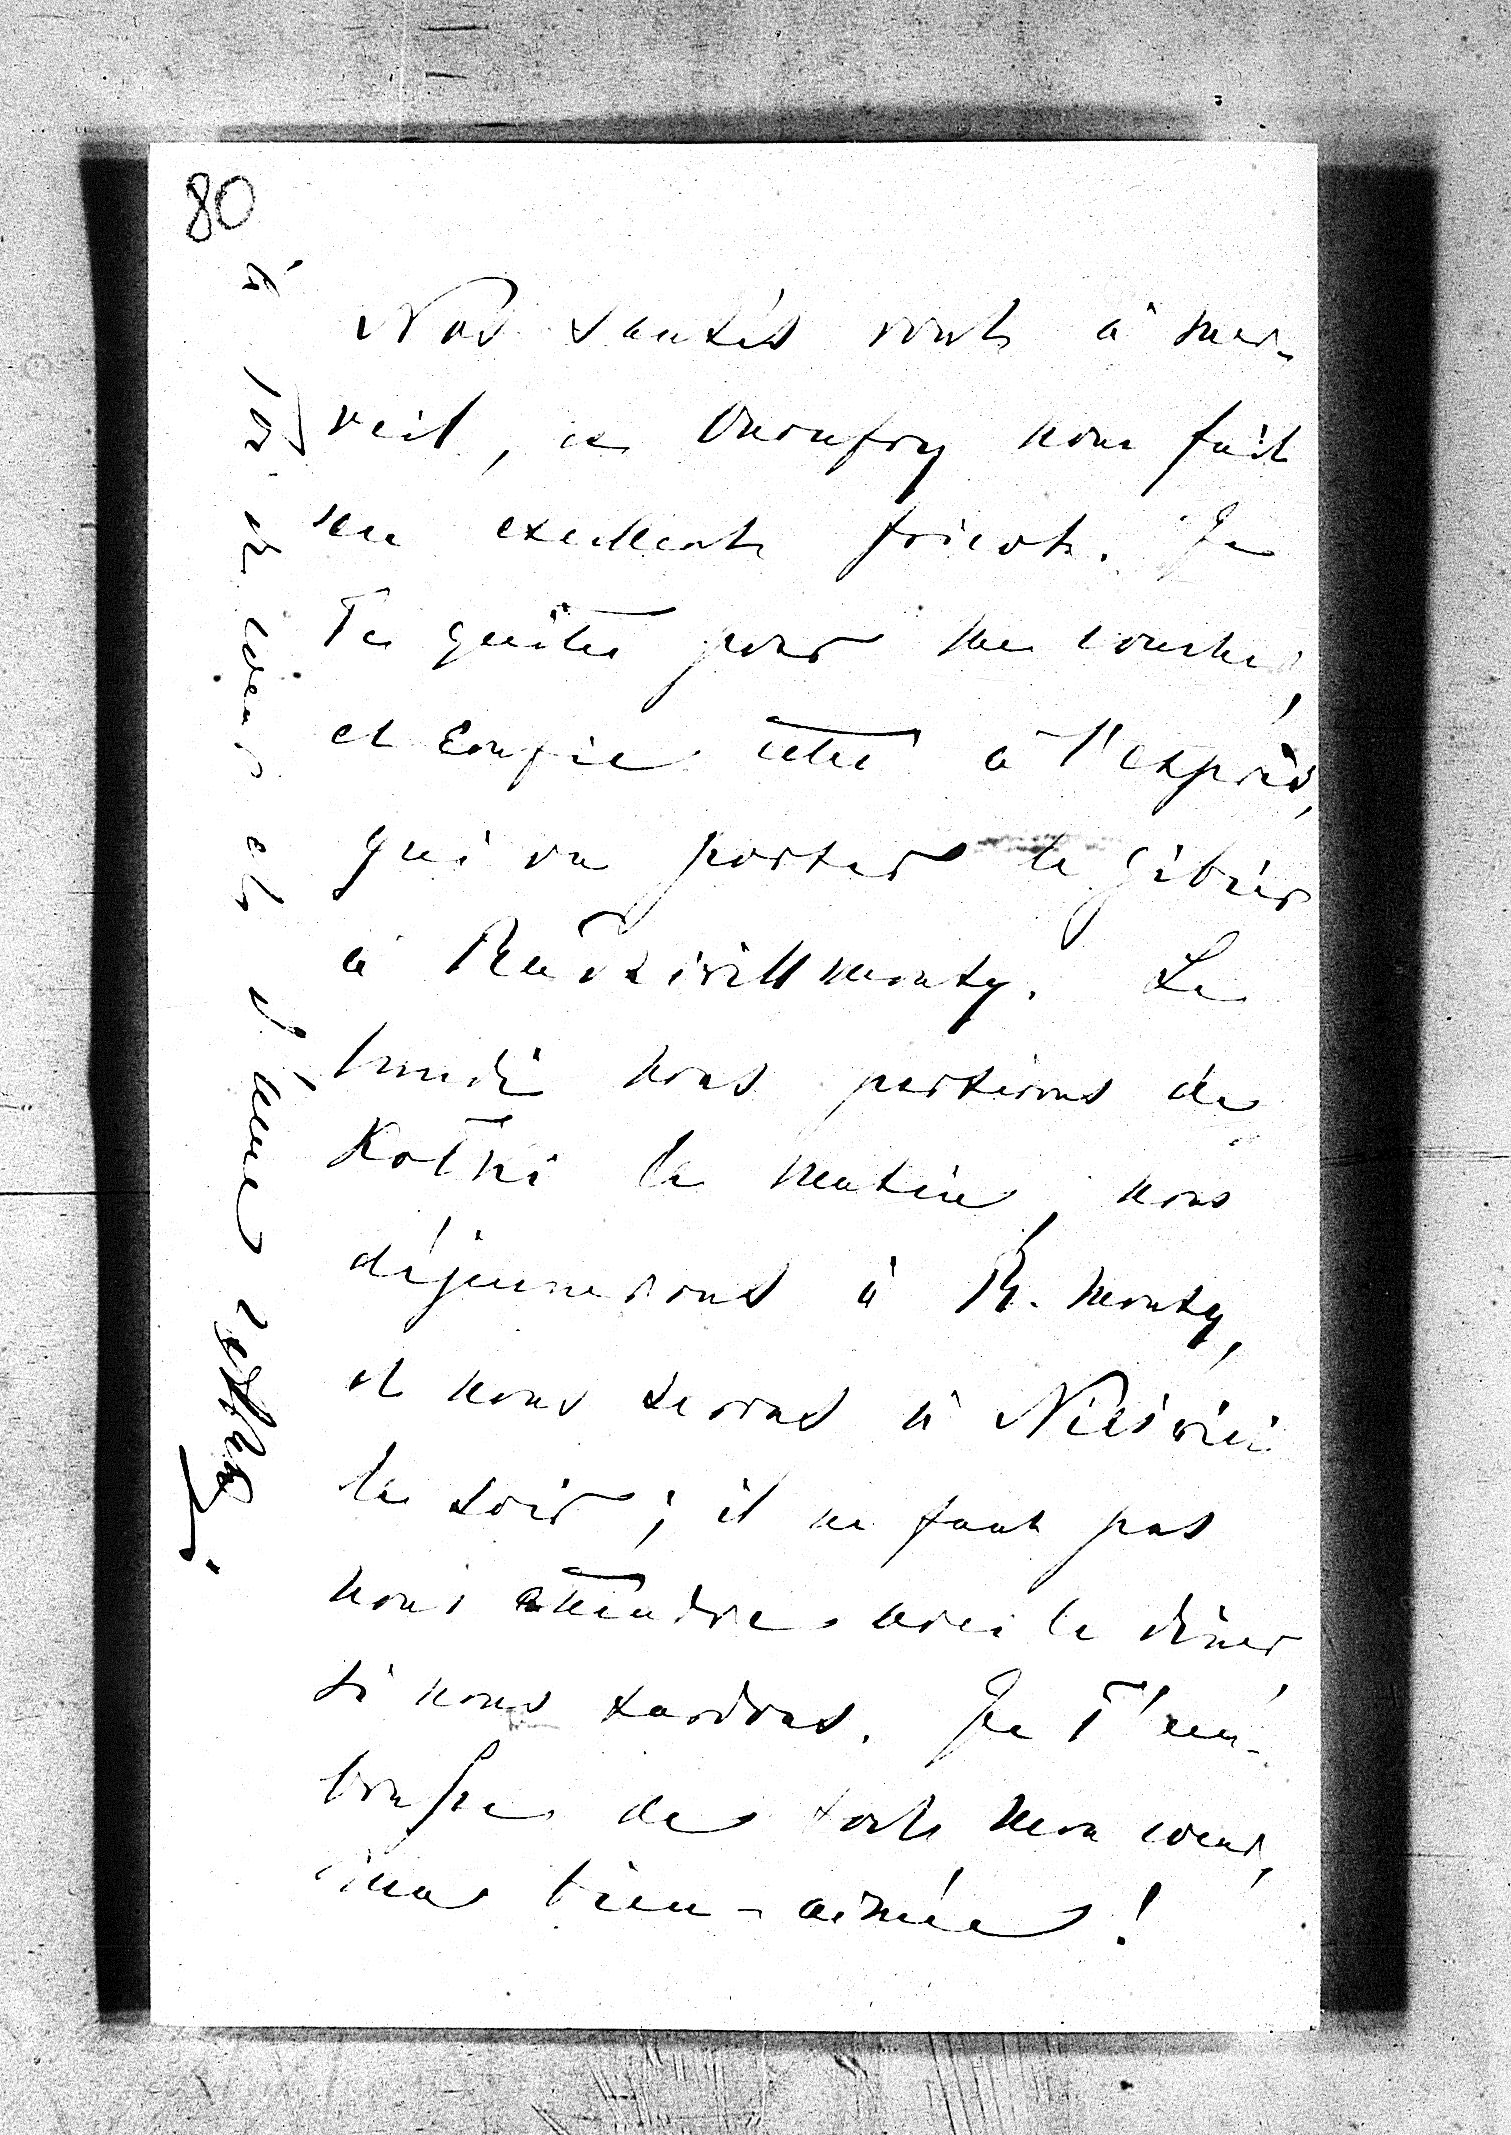 80
Nos santés vont à mer-
veil, et Onoufry nous fait
un excellent fricot. Je
Te quitte pour me coucher,
et confie cette à l'exprès,
qui va porter le gibier
à Radziwillmonty. Le
lundi nous partirons de
Kotki le matin, nous
déjeunerons à R. monty,
et nous serons à Nieśwież
le soir; il ne faut pas
nous attendre avec le dîner
si nous tardons. Je T'em-
brasse de tout mon cœur,
ma bien-aimée!
à toi de cœur et d'âme